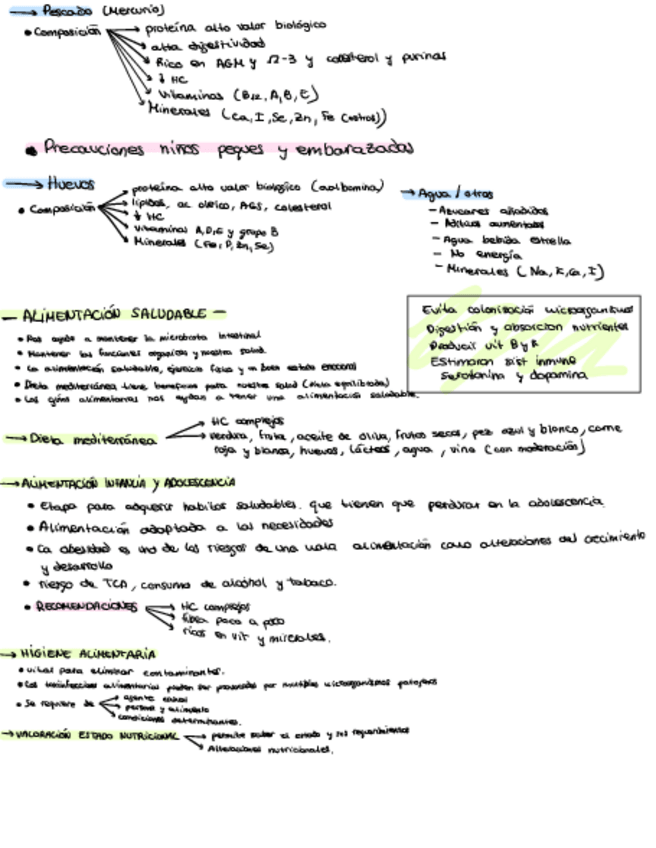 → Pescado (Mercurio)
• Composición → proteína alto valor biológico
→ alta digestividad
→ Rico en AGM y Ω-3 y colesterol y purinas
→ ↓ HC
→ Vitaminas (B12, A, B, E)
→ Minerales (Ca, I, Se, Zn, Fe (ostras))
• Precauciones niños peques y embarazadas
→ Huevos
• Composición → proteína alto valor biológico (ovoalbúmina)
→ lípidos, ac oleico, AGS, colesterol
→ ↓ HC
→ Vitaminas A, D, E y grupo B
→ Minerales (Fe, P, Zn, Se)
→ Agua / otros
- Azucares añadidos
- Aditivos aumentados
- Agua bebida estrella
- No energía
- Minerales (Na, K, Ca, I)
— ALIMENTACIÓN SALUDABLE —
• Nos ayuda a mantener la microbiota intestinal
• Mantener las funciones organicas y nuestra salud.
• La alimentación saludable, ejercicio físico y un buen estado emocional
• Dieta mediterránea tiene beneficios para nuestra salud (dieta equilibrada)
• Las guías alimentarias nos ayudan a tener una alimentación saludable.
Evita colonización microorganismos
Digestión y absorcion nutrientes
Producir vit B y K
Estimaron sist inmune
Serotonina y dopamina
→ Dieta mediterránea → HC complejos
→ verdura, fruta, aceite de oliva, frutos secos, pez azul y blanco, carne
roja y blanca, huevos, lácteos, agua, vino (con moderación)
→ ALIMENTACIÓN INFANCIA Y ADOLESCENCIA
• Etapa para adquirir habitos saludables. que tienen que perdurar en la adolescencia.
• Alimentación adaptada a las necesidades
• La obesidad es uno de los riesgos de una mala alimentación como alteraciones del crecimiento
y desarrollo
• riesgo de TCA, consumo de alcohol y tabaco.
• RECOMENDACIONES → HC complejos
→ fibra poco a poco
→ ricos en vit y minerales.
→ HIGIENE ALIMENTARIA
• vital para eliminar contaminantes.
• Las toxiinfecciones alimentarias pueden ser provocadas por multiples microorganismos patogenos
• Se requiere de → agente causal
→ persona y alimento
→ condiciones determinantes.
→ VALORACIÓN ESTADO NUTRICIONAL → permite saber el estado y sus requerimientos
→ Alteraciones nutricionales.